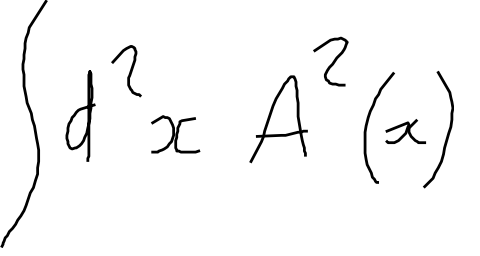 ∫ d²x A²(x)